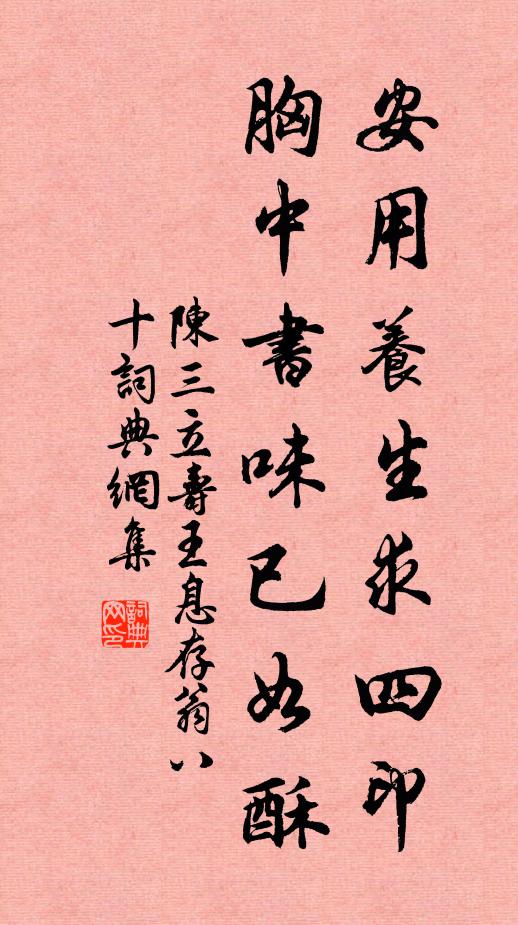 安用養生求四印
胸中書味已如酥
陳三立壽王息存翁八
十詞典網集
詞典
网印